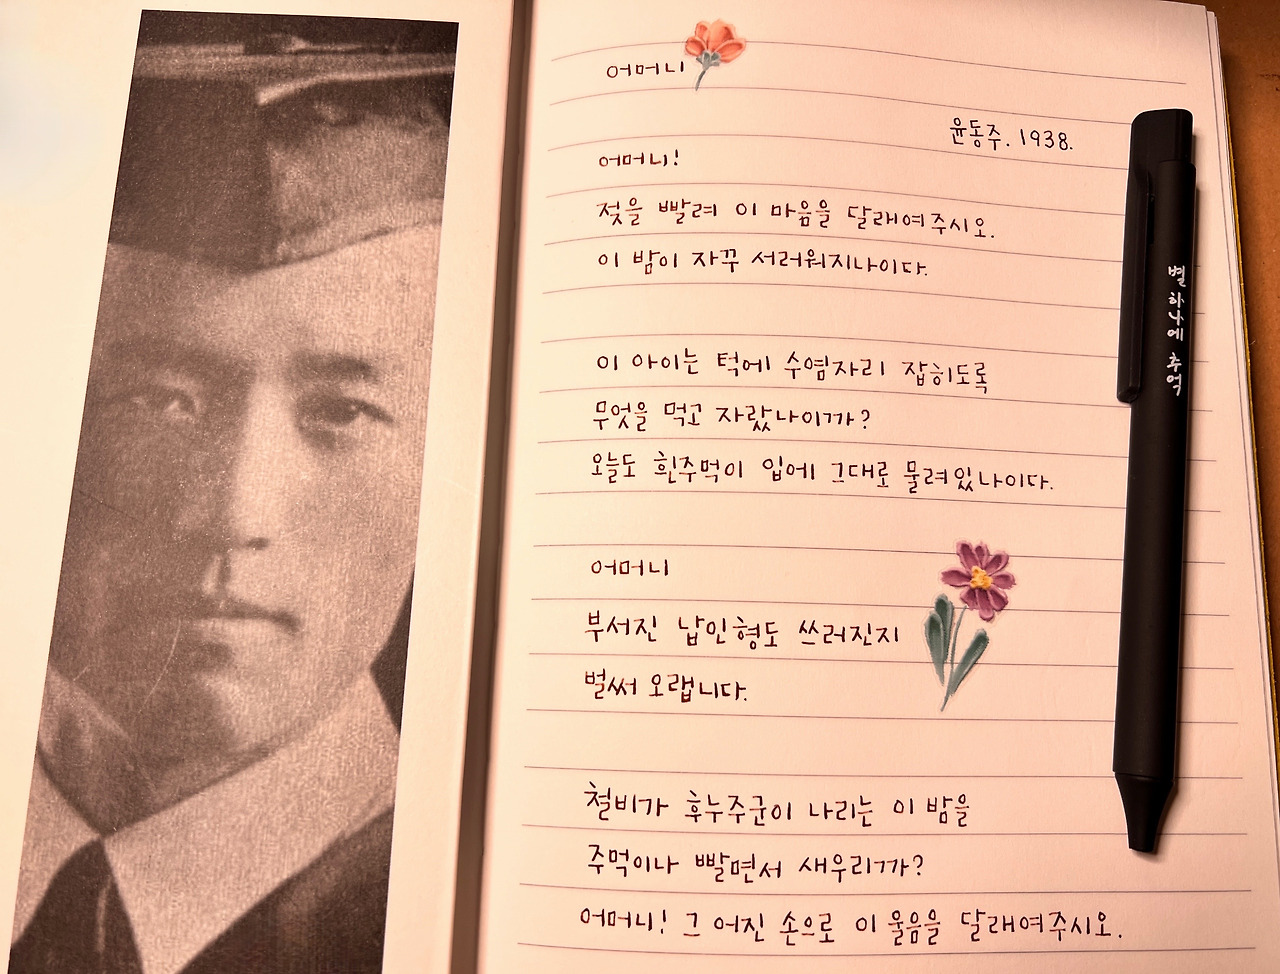 어머니
윤동주. 1938.
어머니!
젖을 빨려 이 마음을 달래여주시오.
이 밤이 자꾸 서러워지나이다.
이 아이는 턱에 수염자리 잡히도록
무엇을 먹고 자랐나이까?
오늘도 흰주먹이 입에 그대로 물려있나이다.
어머니
부서진 납인형도 쓰러진지
벌써 오랩니다.
철비가 후누주군이 나리는 이 밤을
주먹이나 빨면서 새우리까?
어머니! 그 어진 손으로 이 울음을 달래여주시오.
별 하나에 추억